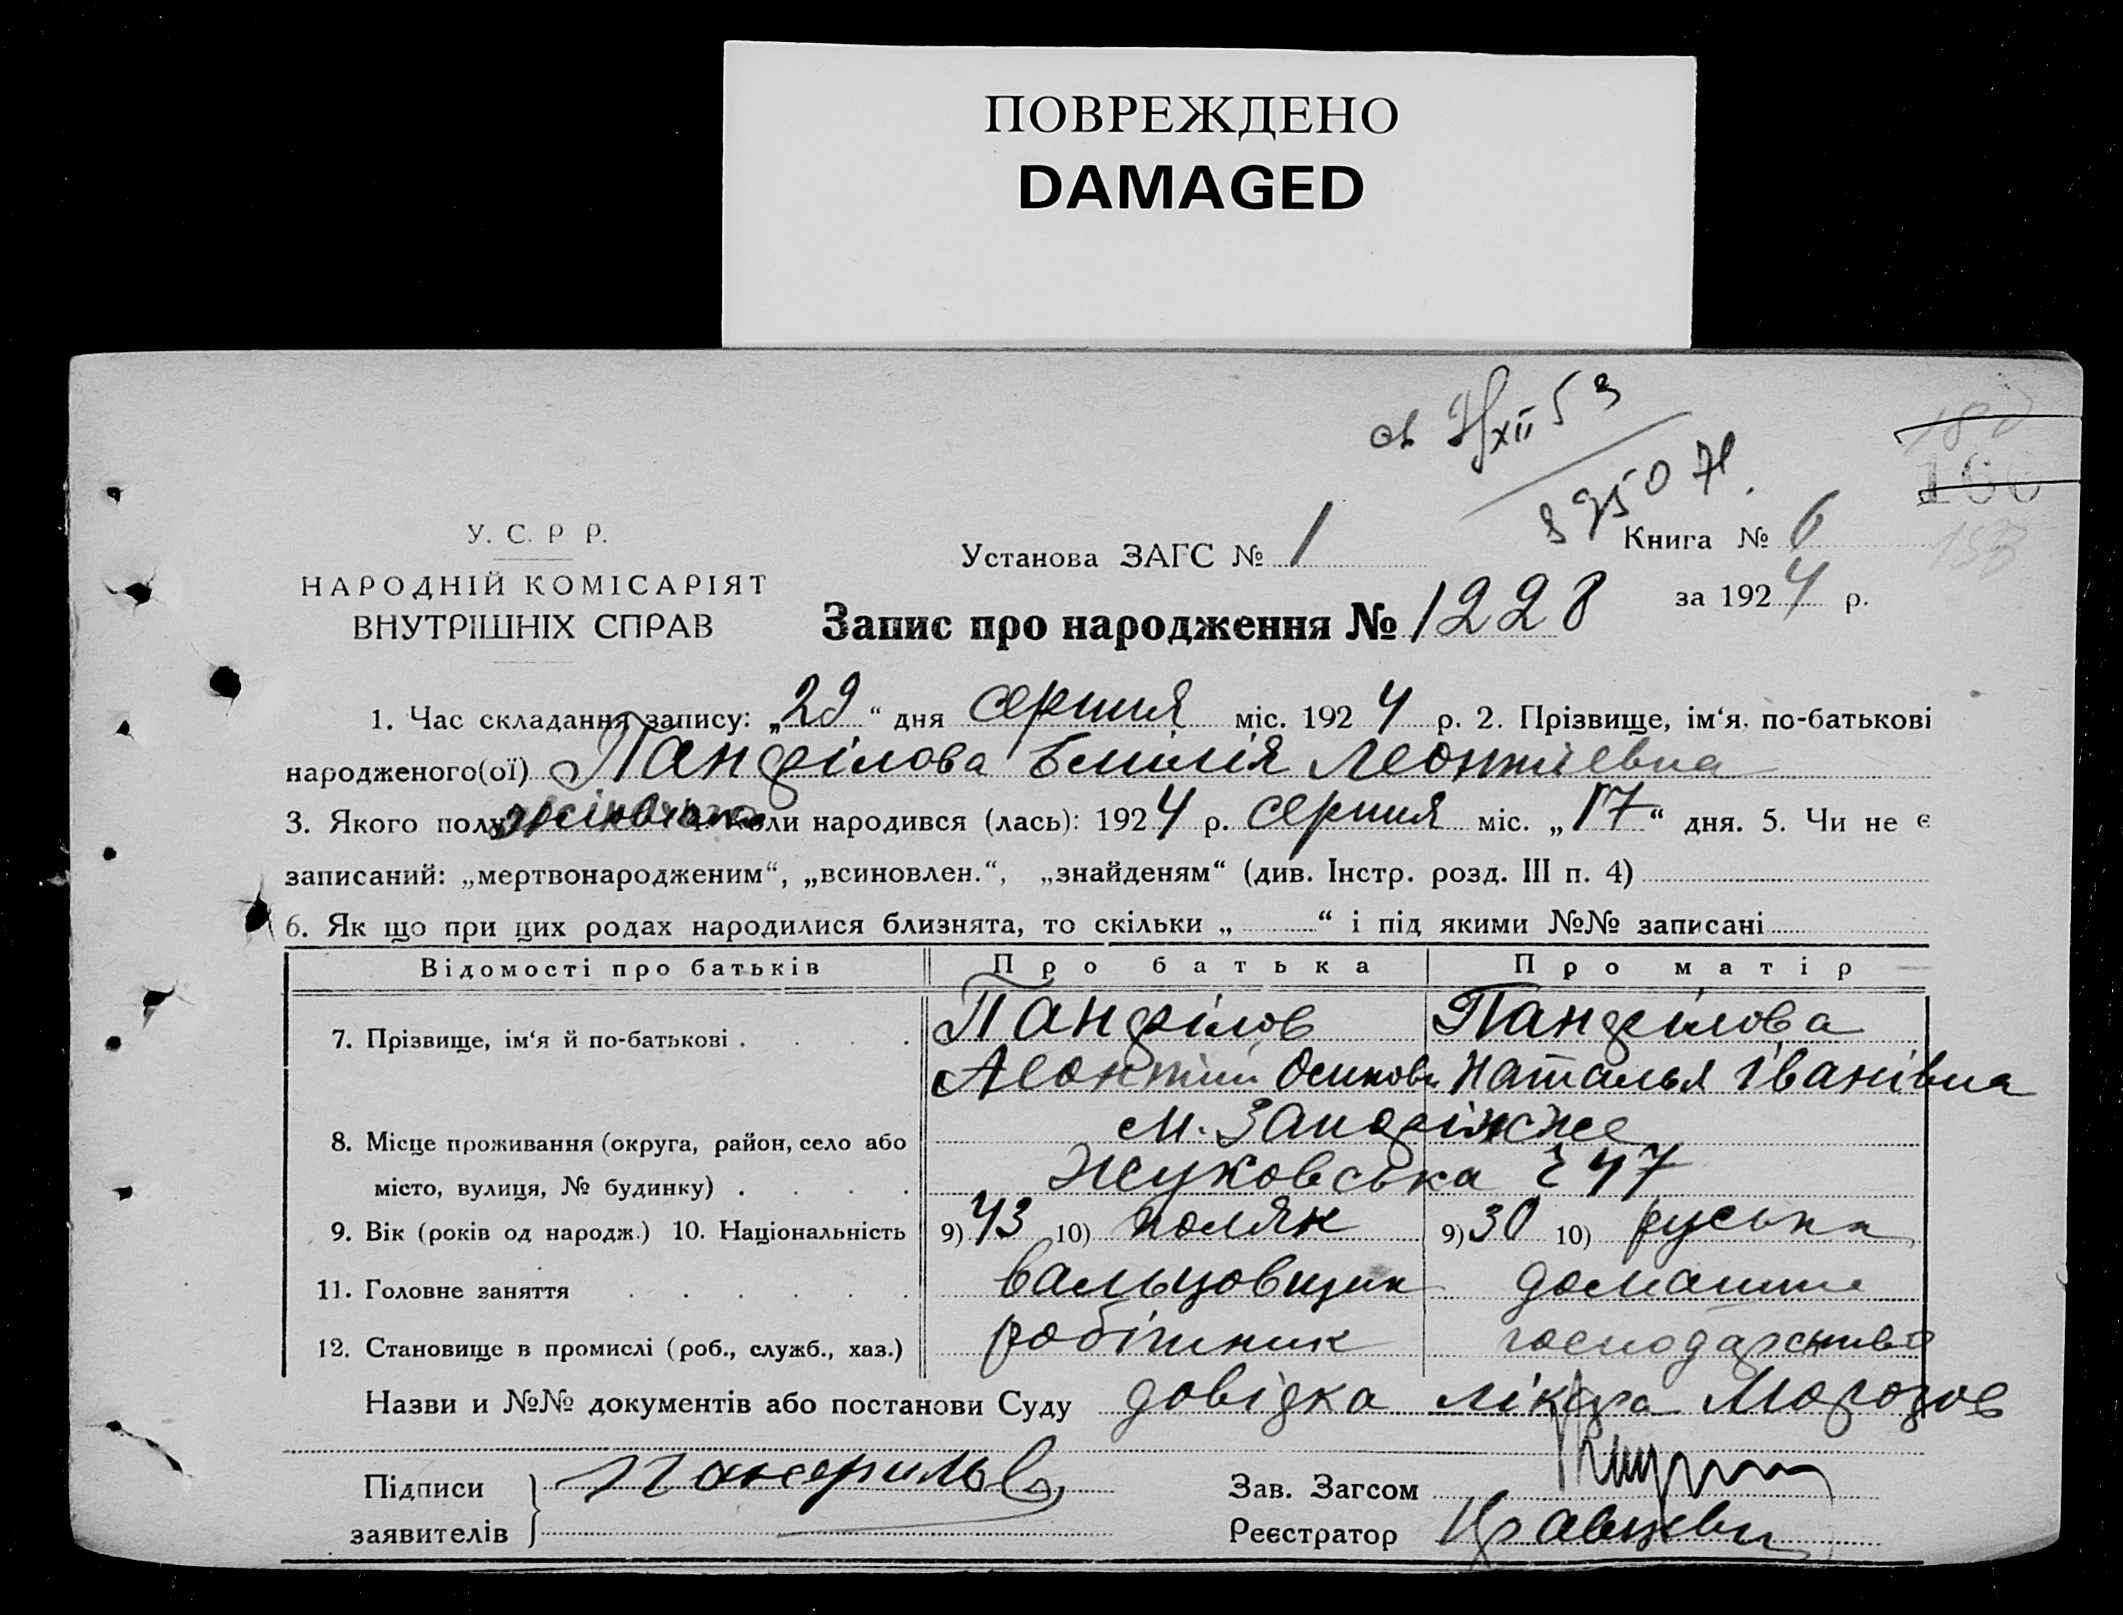 ПОВРЕЖДЕНО
DAMAGED
XII 53
180
160
153
У. С. Р Р.
НАРОДНІЙ КОМІСАРІЯТ
ВНУТРІШНІХ СПРАВ
Установа ЗАГС № 1
Книга № 6
за 1924 р.
Запис про народження № 1228
1. Час складання запису: „29“ дня серпня міс. 1924 р. 2. Прізвище, ім‘я, по-батькові
народженого(ої) Панфілова Емілія Леонтиевна
3. Якого полу жіночого 4. Коли народився (лась): 1924 р. серпня міс. „17“ дня. 5. Чи не є
записаний: „мертвонародженим“, „всиновлен.“, „знайденям“ (див. Інстр. розд. III п. 4)
6. Як що при цих родах народилися близнята, то скільки „ “ і під якими №№ записані
Відомості про батьків Про батька Про матір
7. Прізвище, ім‘я й по-батькові Панфілов Панфілова
Леонтий Осипов Наталья Іванівна
8. Місце проживання (округа, район, село або м. Запоріжже
місто, вулиця, № будинку) Жуковська 47
9. Вік (років од народж.) 10. Національність 9) 43 10) поляк 9) 30 10) руська
11. Головне заняття вальцовщик домашнє
12. Становище в промислі (роб., служб., хаз.) робітник господарство
Назви и №№ документів або постанови Суду довідка лікаря Морозов
Підписи Панфилов Зав. Загсом
заявителів Реєстратор